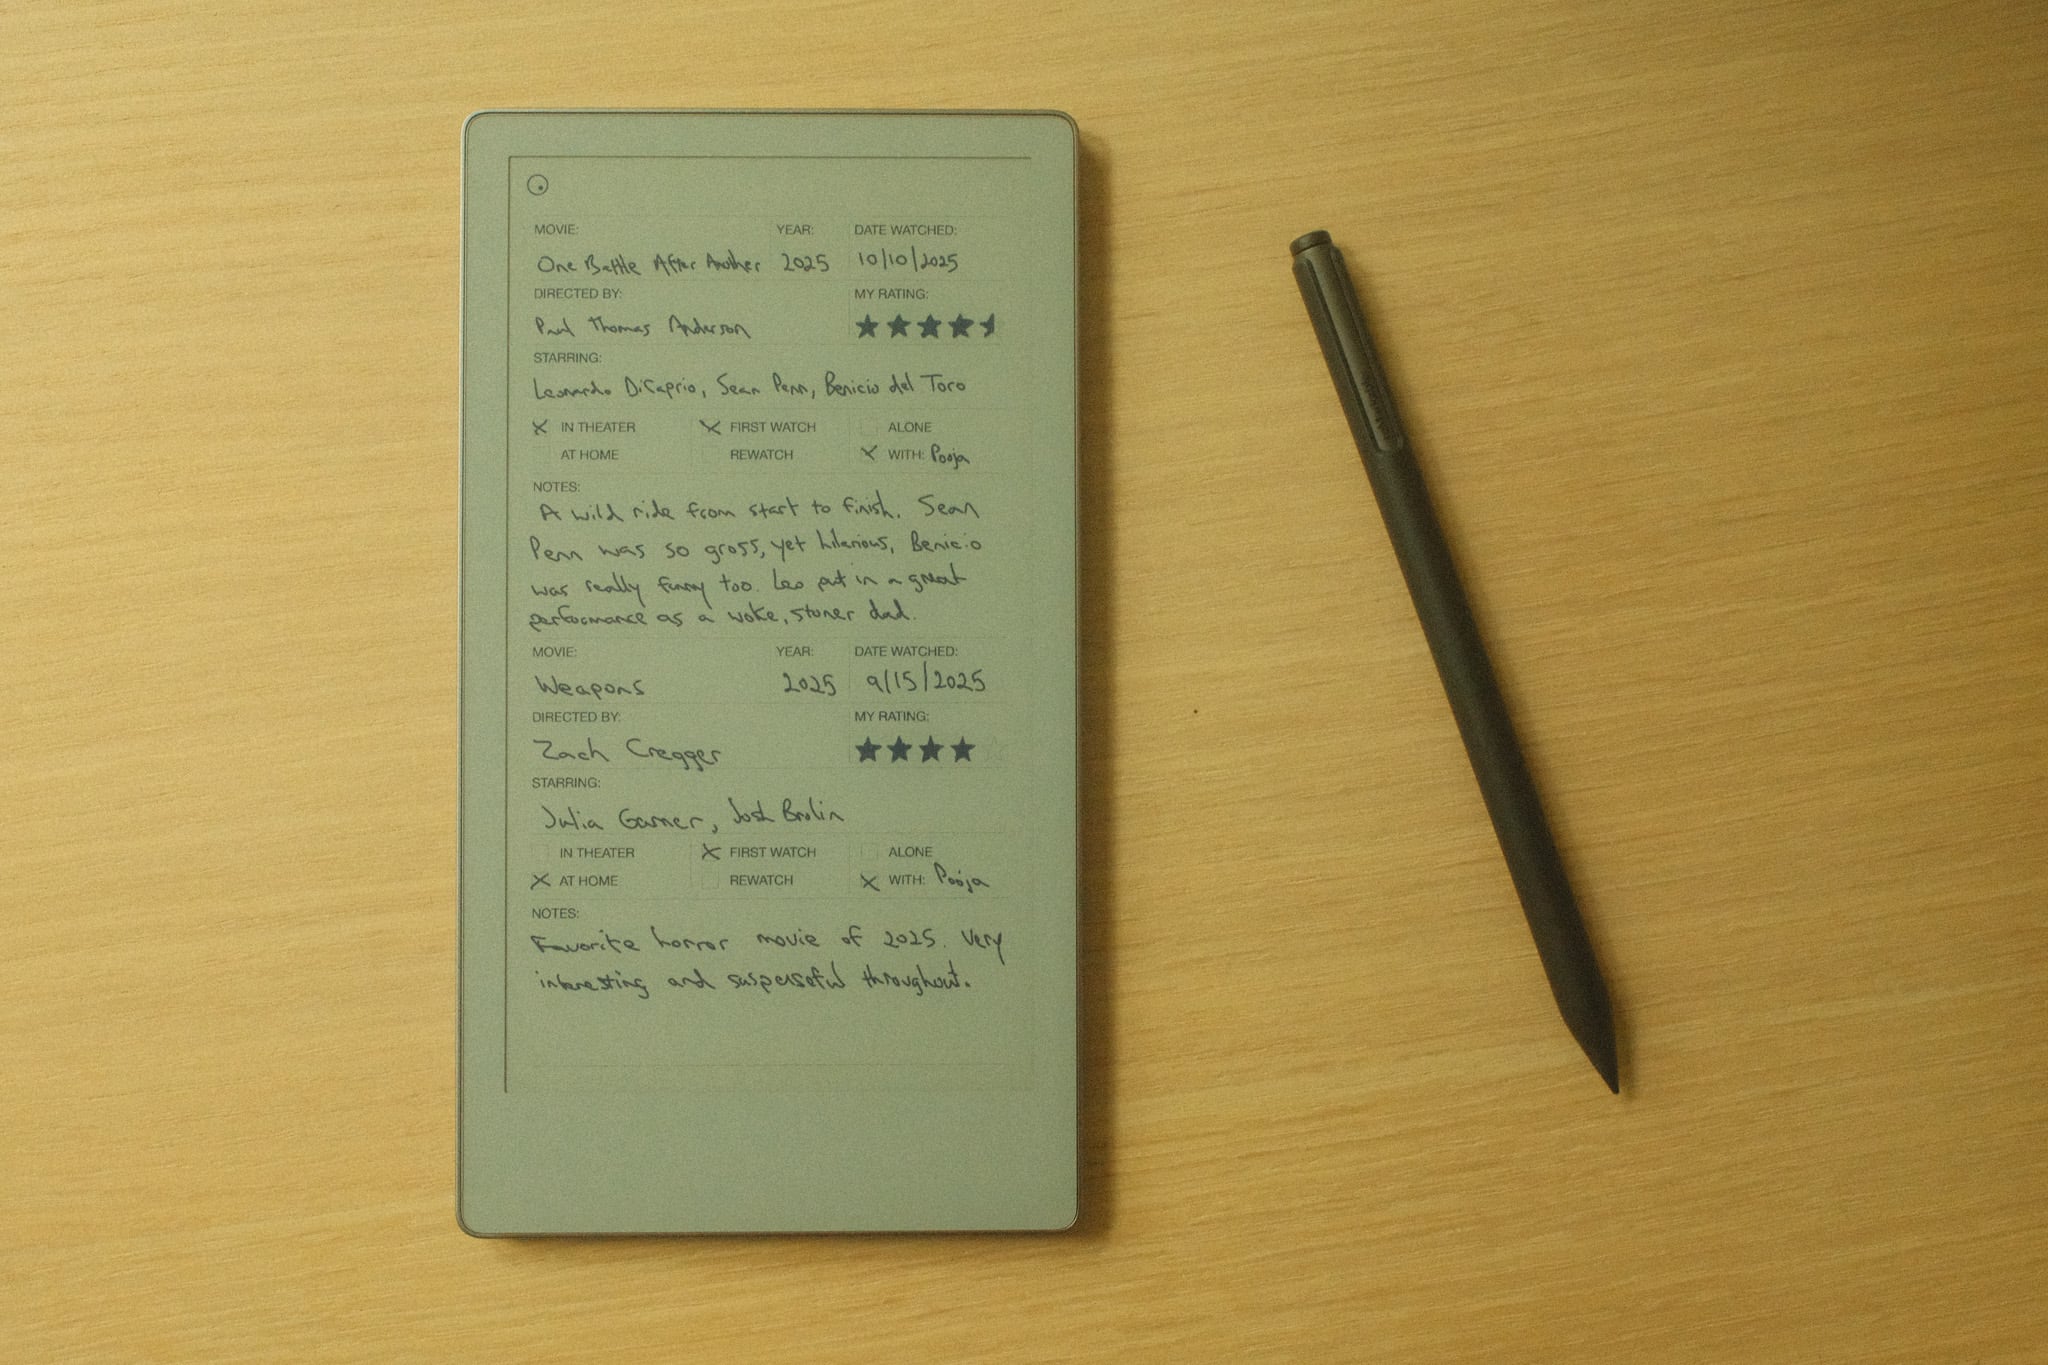 MOVIE: YEAR: DATE WATCHED:
One Battle After Another 2025 10/10/2025
DIRECTED BY: MY RATING:
Paul Thomas Anderson
STARRING:
Leonardo DiCaprio, Sean Penn, Benicio del Toro
IN THEATER FIRST WATCH ALONE
AT HOME REWATCH WITH: Pooja
NOTES:
A wild ride from start to finish. Sean
Penn was so gross, yet hilarious, Benicio
was really funny too. Leo put in a great
performance as a woke, stoner dad.
MOVIE: YEAR: DATE WATCHED:
Weapons 2025 9/15/2025
DIRECTED BY: MY RATING:
Zach Cregger
STARRING:
Julia Garner, Josh Brolin
IN THEATER FIRST WATCH ALONE
AT HOME REWATCH WITH: Pooja
NOTES:
Favorite horror movie of 2025. Very
interesting and suspenseful throughout.